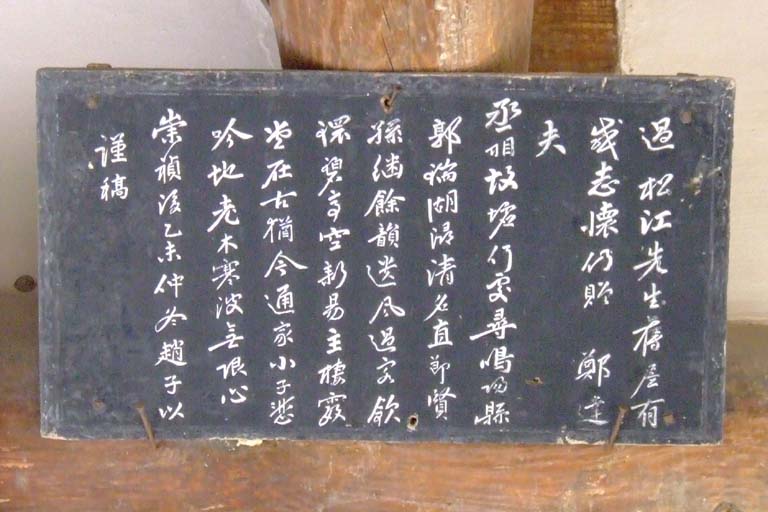 過松江先生舊居有
感志懷仍贈 鄭達
夫
丞相故墟何處尋鳴陽縣
郭瑞湖潯清名直節賢
孫繼餘韻遺風過客欽
環碧亭空新易主棲霞
堂在古猶今通家小子悲
吟地老木寒波無限心
崇禎後乙未仲冬趙子以
謹稿